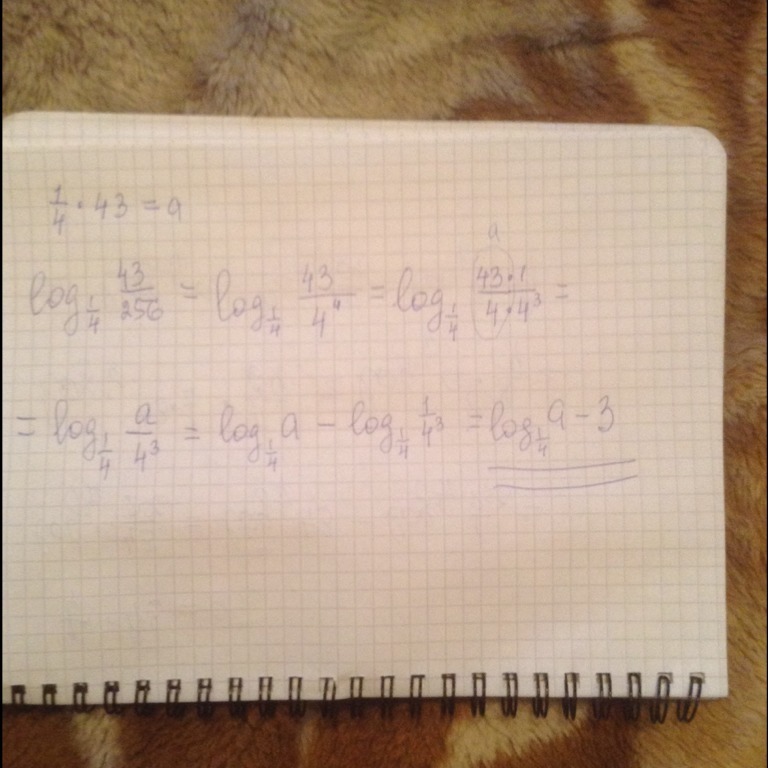 1/4 · 43 = a
log_{1/4} 43/256 = log_{1/4} 43/4^4 = log_{1/4} (43 · 1)/(4 · 4^3) =
a
= log_{1/4} a/4^3 = log_{1/4} a − log_{1/4} 1/4^3 = log_{1/4} a − 3